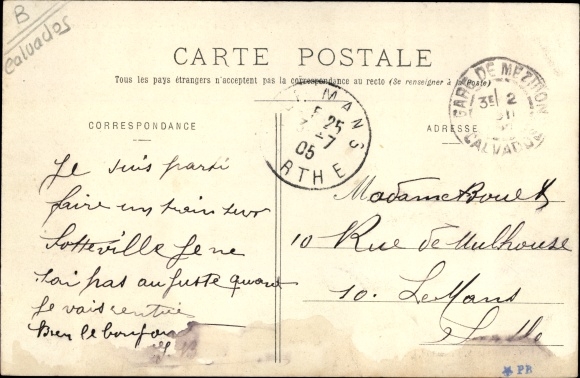 B
Calvados
CARTE POSTALE
Tous les pays étrangers n'acceptent pas la correspondance au recto (Se renseigner à la Poste)
MANS
5 25
-7
05
RTHE
GARE DE MEZIDON
3E 2
CALVADOS
CORRESPONDANCE
ADRESSE
Je suis parti
faire un train sur
Sotteville Je ne
sai pas au juste quant
Je vais rentré
Bien le bonjour
Madame Bouet
10 Rue de Mulhouse
10. Le Mans
Sarthe
* PB